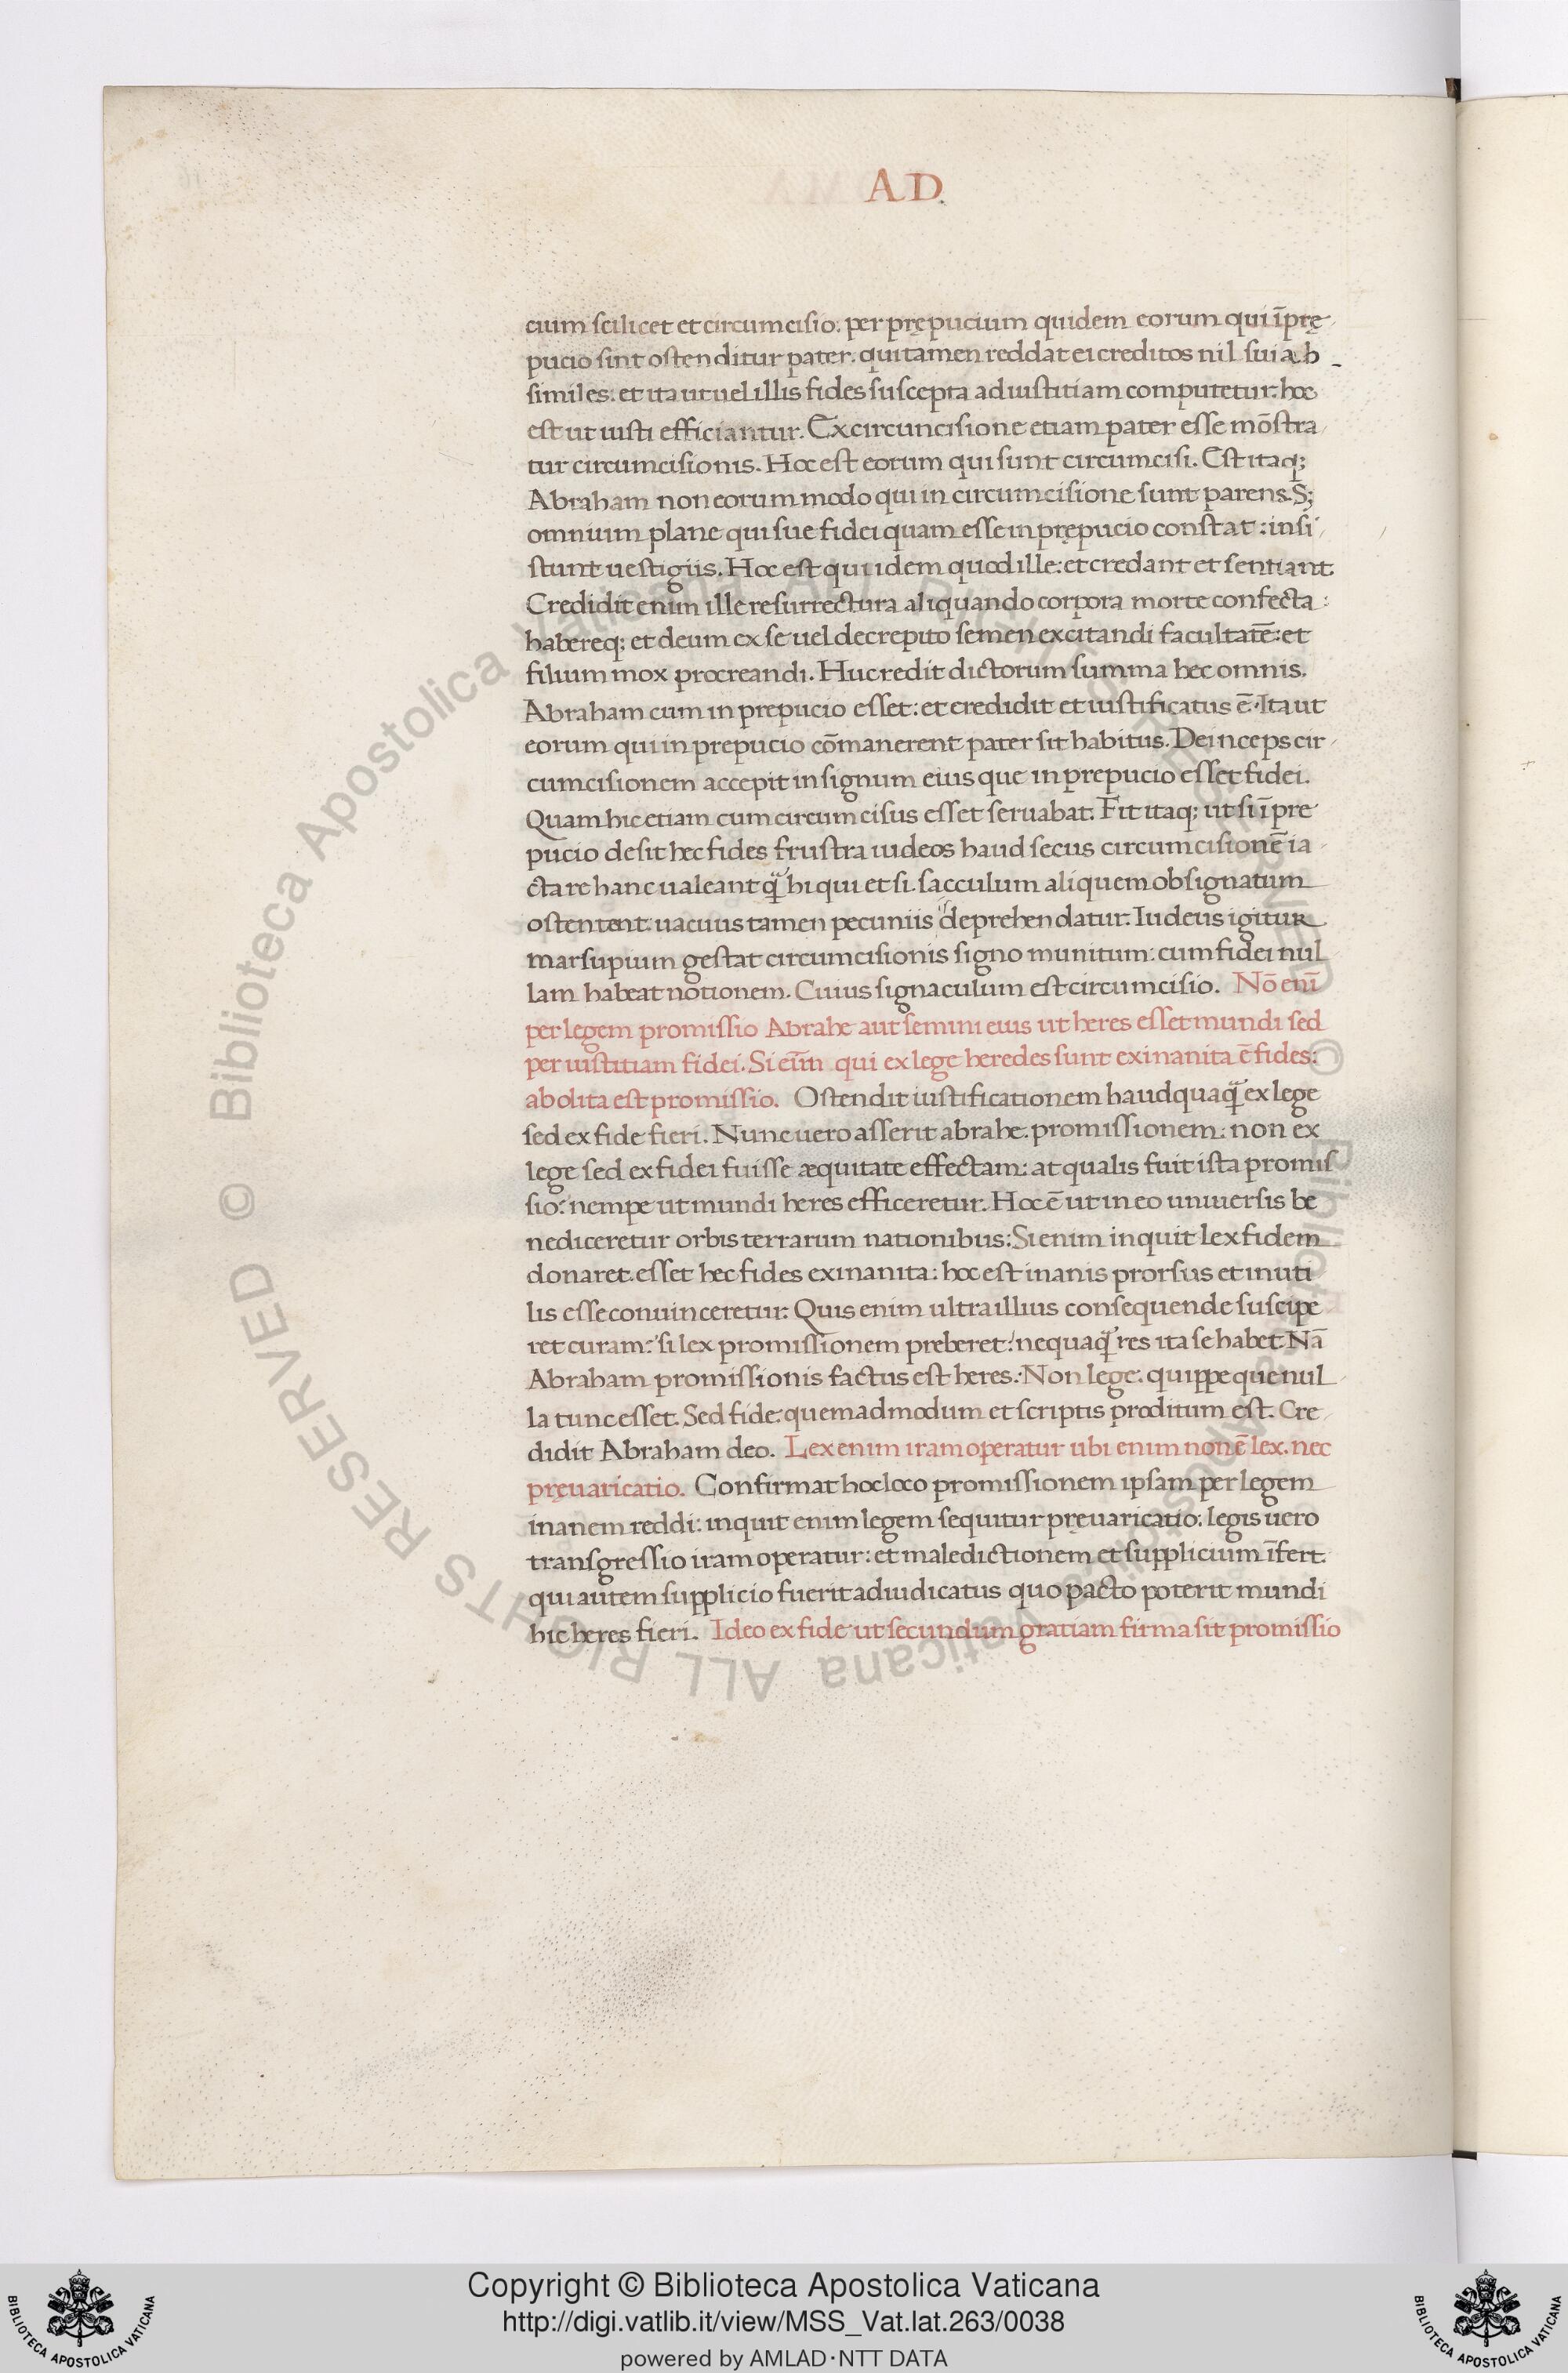 A.D.
cium scilicet et circumcisio. per pręputium quidem eorum qui ī prę
pucio sint ostenditur pater. qui tamen reddat ei creditos nil sui ab
similes: et ita ut uel illis fides suscepta ad iustitiam computetur: hoc
est ut iusti efficiantur. Ex circuncisione etiam pater esse mōstra
tur circumcisionis. Hoc est eorum qui sunt circumcisi. Est itaq;
Abraham non eorum modo qui in circumcisione sunt parens. S;
omnium plane qui sue fidei quam esse in prępucio constat: insi
stunt uestigiis. Hoc est qui idem quod ille: et credant et sentiant.
Credidit enim ille resurrectura aliquando corpora morte confecta:
habereq; et deum ex se uel decrepito semen excitandi facultatē: et
filium mox procreandi. Huc redit dictorum summa hec omnis.
Abraham cum in prepucio esset: et credidit et iustificatus ē. Ita ut
eorum qui in prepucio cōmanerent pater sit habitus. Deinceps cir
cumcisionem accepit in signum eius que in prepucio esset fidei.
Quam hic etiam cum circumcisus esset seruabat. Fit itaq; ut si ī pre
pucio desit hec fides frustra iudeos haud secus circumcisionē ia
ctare hanc ualeant q̃ hi qui et si sacculum aliquem obsignatum
ostentent: uacuus tamen pecuniis deprehendatur. Iudeus igitur
marsupium gestat circumcisionis signo munitum: cum fidei nul
lam habeat notionem. Cuius signaculum est circumcisio. Nō enī
per legem promissio Abrahe aut semini eius ut heres esset mundi sed
per iustitiam fidei. Si eīm qui ex lege heredes sunt exinanita ē fides:
abolita est promissio. Ostendit iustificationem haudquaq̃ ex lege
sed ex fide fieri. Nunc uero asserit abrahe promissionem: non ex
lege sed ex fidei fuisse æquitate effectam: at qualis fuit ista promis
sio: nempe ut mundi heres efficeretur. Hoc ē ut in eo uniuersis be
nediceretur orbis terrarum nationibus: Si enim inquit lex fidem
donaret. esset hec fides exinanita: hoc est inanis prorsus et inuti
lis esse conuinceretur. Quis enim ultra illius consequende suscipe
ret curam: si lex promissionem preberet: nequaq̃ res ita se habet. Nā
Abraham promissionis factus est heres: Non lege. quippe que nul
la tunc esset. Sed fide: quemadmodum et scriptis proditum est. Cre
didit Abraham deo. Lex enim iram operatur ubi enim non ē lex. nec
pręuaricatio. Confirmat hoc loco promissionem ipsam per legem
inanem reddi: inquit enim legem sequitur pręuaricatio: legis uero
transgressio iram operatur: et maledictionem et supplicium īfert.
qui autem supplicio fuerit adiudicatus quo pacto poterit mundi
hic heres fieri. Ideo ex fide ut secundum gratiam firma sit promissio
© Biblioteca Apostolica Vaticana ALL RIGHTS RESERVED
© Biblioteca Apostolica Vaticana ALL RIGHTS RESERVED
Copyright © Biblioteca Apostolica Vaticana
http://digi.vatlib.it/view/MSS_Vat.lat.263/0038
powered by AMLAD·NTT DATA
BIBLIOTECA APOSTOLICA VATICANA
BIBLIOTECA APOSTOLICA VATICANA